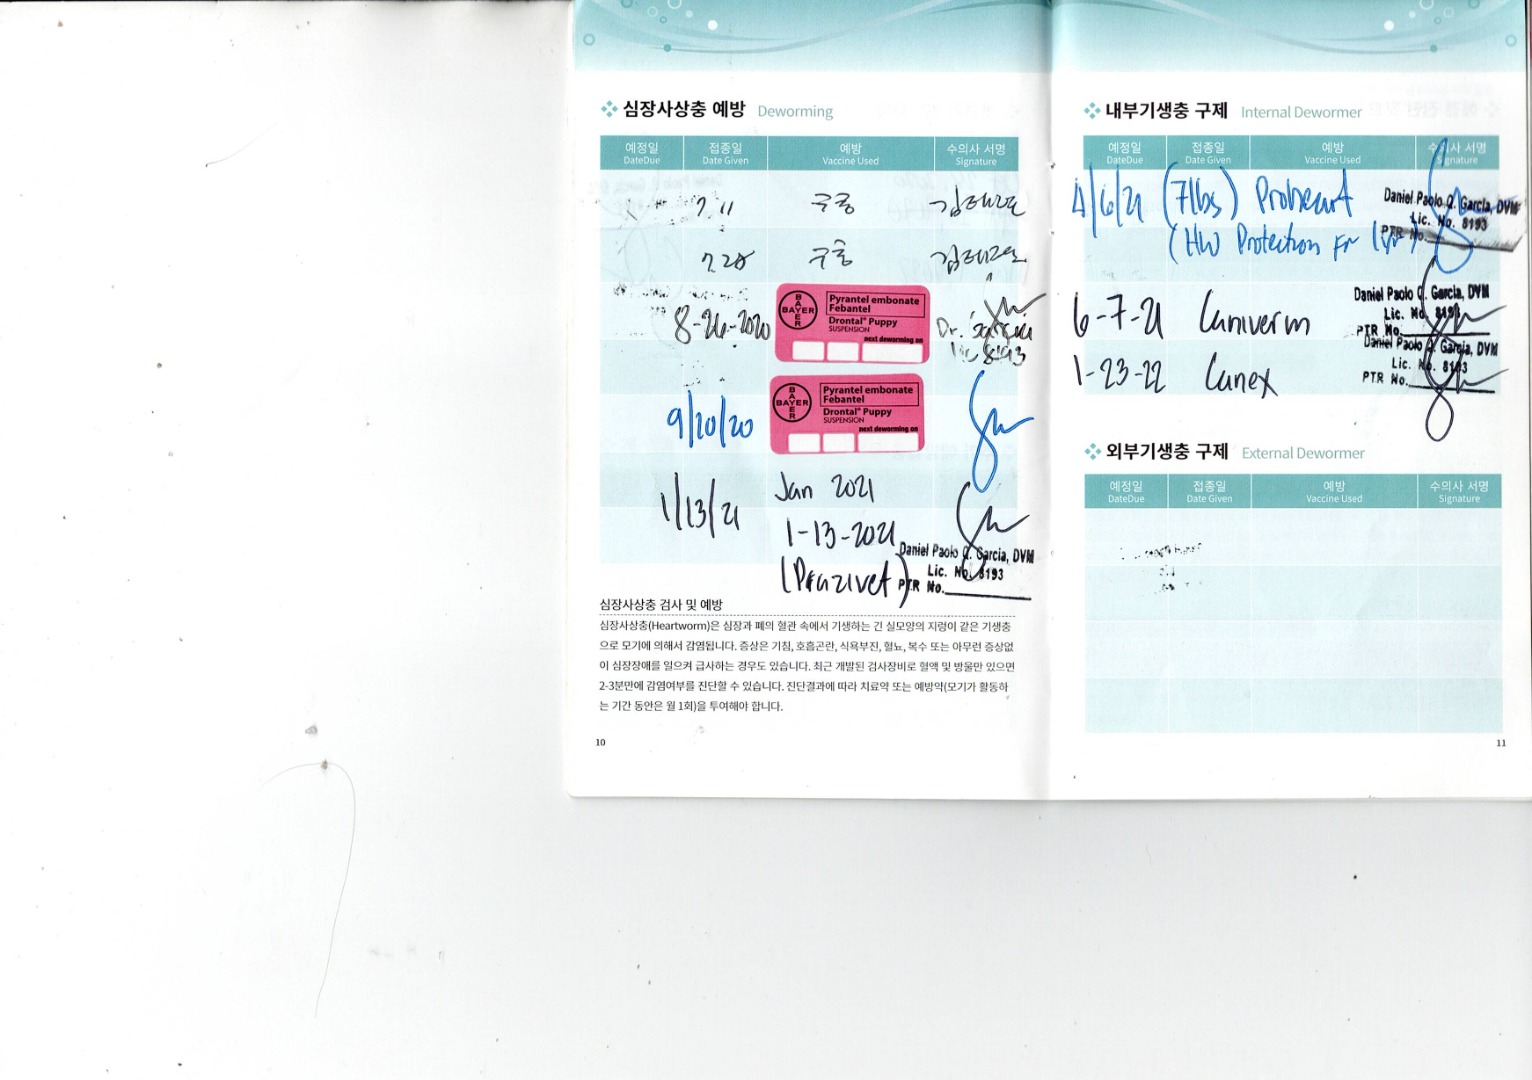 심장사상충 예방 Deworming
예정일 접종일 예방 수의사 서명
DateDue Date Given Vaccine Used Signature
7 11 구충
7 28 구충
8-26-2020
BAYER
BAYER
Pyrantel embonate
Febantel
Drontal® Puppy
SUSPENSION
next deworming on
Dr. Garcia
lic 8193
9/20/20
BAYER
BAYER
Pyrantel embonate
Febantel
Drontal® Puppy
SUSPENSION
next deworming on
1/13/21
Jan 2021
1-13-2021
(Prazivet)
Daniel Paolo Q. Garcia, DVM
Lic. No. 8193
PTR No.
심장사상충 검사 및 예방
심장사상충(Heartworm)은 심장과 폐의 혈관 속에서 기생하는 긴 실모양의 지렁이 같은 기생충
으로 모기에 의해서 감염됩니다. 증상은 기침, 호흡곤란, 식욕부진, 혈뇨, 복수 또는 아무런 증상없
이 심장장애를 일으켜 급사하는 경우도 있습니다. 최근 개발된 검사장비로 혈액 및 방울만 있으면
2-3분만에 감염여부를 진단할 수 있습니다. 진단결과에 따라 치료약 또는 예방약(모기가 활동하
는 기간 동안은 월 1회)을 투여해야 합니다.
10
내부기생충 구제 Internal Dewormer
예정일 접종일 예방 수의사 서명
DateDue Date Given Vaccine Used Signature
4/6/21 (7lbs) Proheart
(HW Protection for 1yr)
Daniel Paolo Q. Garcia, DVM
Lic. No. 8193
PTR No.
6-7-21 Caniverm
Daniel Paolo Q. Garcia, DVM
Lic. No. 8193
PTR No.
1-23-22 Canex
Daniel Paolo Q. Garcia, DVM
Lic. No. 8193
PTR No.
외부기생충 구제 External Dewormer
예정일 접종일 예방 수의사 서명
DateDue Date Given Vaccine Used Signature
11